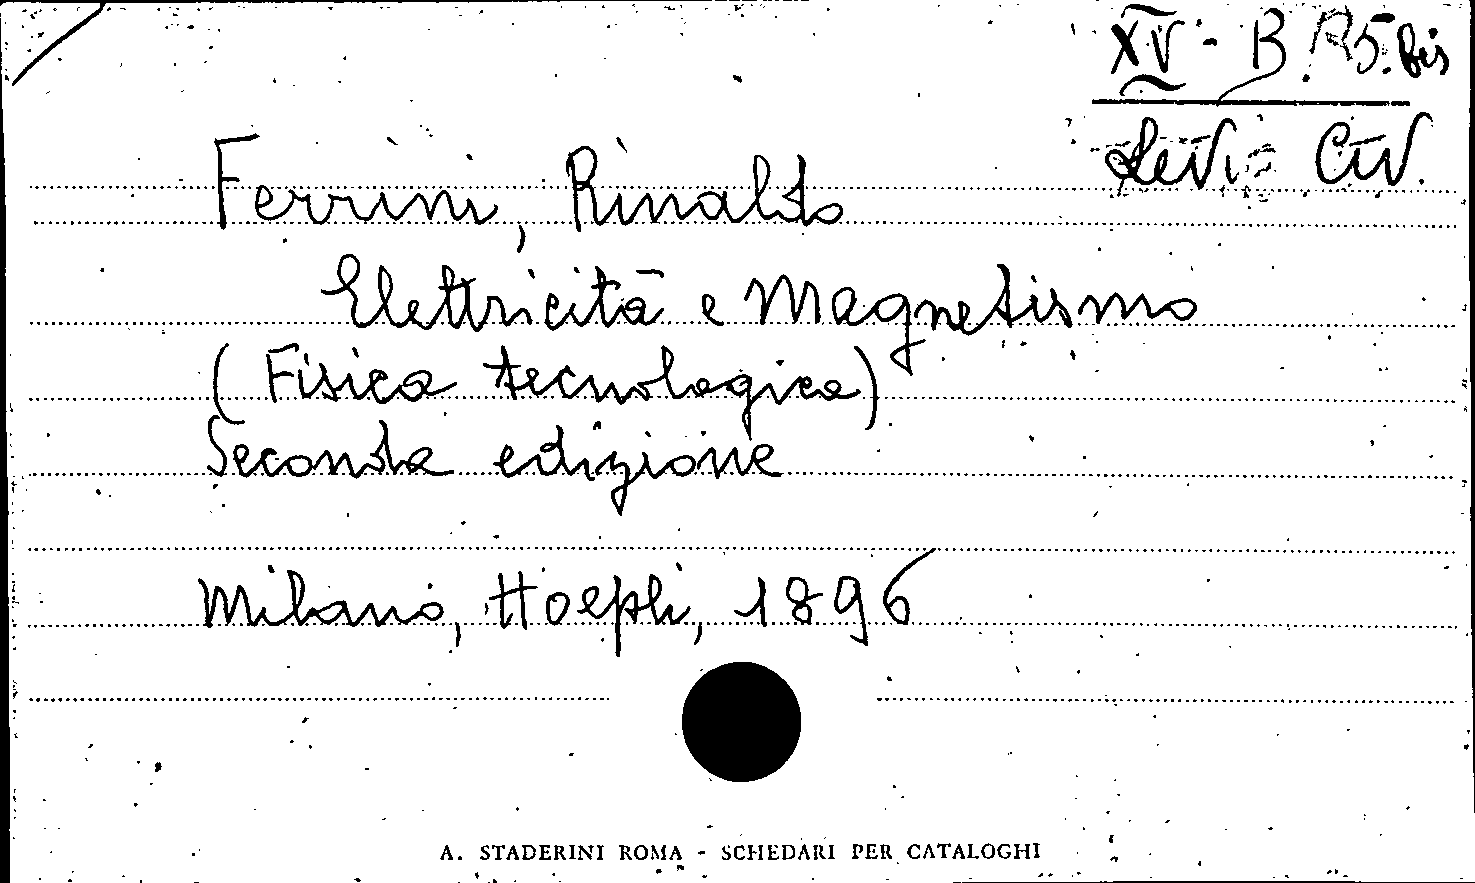 XV - B. 125. bis
Levi = Civ.
Ferrini, Rinaldo
Elettricità e Magnetismo
(Fisica tecnologica)
Seconda edizione
Milano, Hoepli, 1896
A. STADERINI ROMA - SCHEDARI PER CATALOGHI